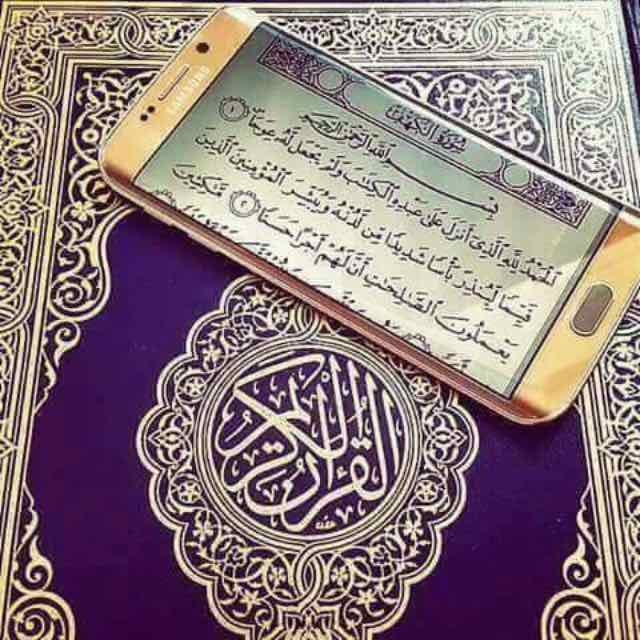 SAMSUNG
سُورَةُ الكَهْفِ
بِسْمِ اللَّهِ الرَّحْمَٰنِ الرَّحِيمِ
ٱلْحَمْدُ لِلَّهِ ٱلَّذِىٓ أَنزَلَ عَلَىٰ عَبْدِهِ ٱلْكِتَٰبَ وَلَمْ يَجْعَل لَّهُۥ عِوَجَاۜ ١
قَيِّمًا لِّيُنذِرَ بَأْسًا شَدِيدًا مِّن لَّدُنْهُ وَيُبَشِّرَ ٱلْمُؤْمِنِينَ ٱلَّذِينَ
يَعْمَلُونَ ٱلصَّٰلِحَٰتِ أَنَّ لَهُمْ أَجْرًا حَسَنًا ٢ مَّٰكِثِينَ
القرآن الكريم